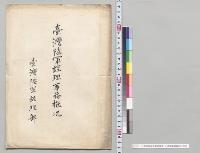 臺灣陸軍經理事務概况
臺灣陸軍經理部